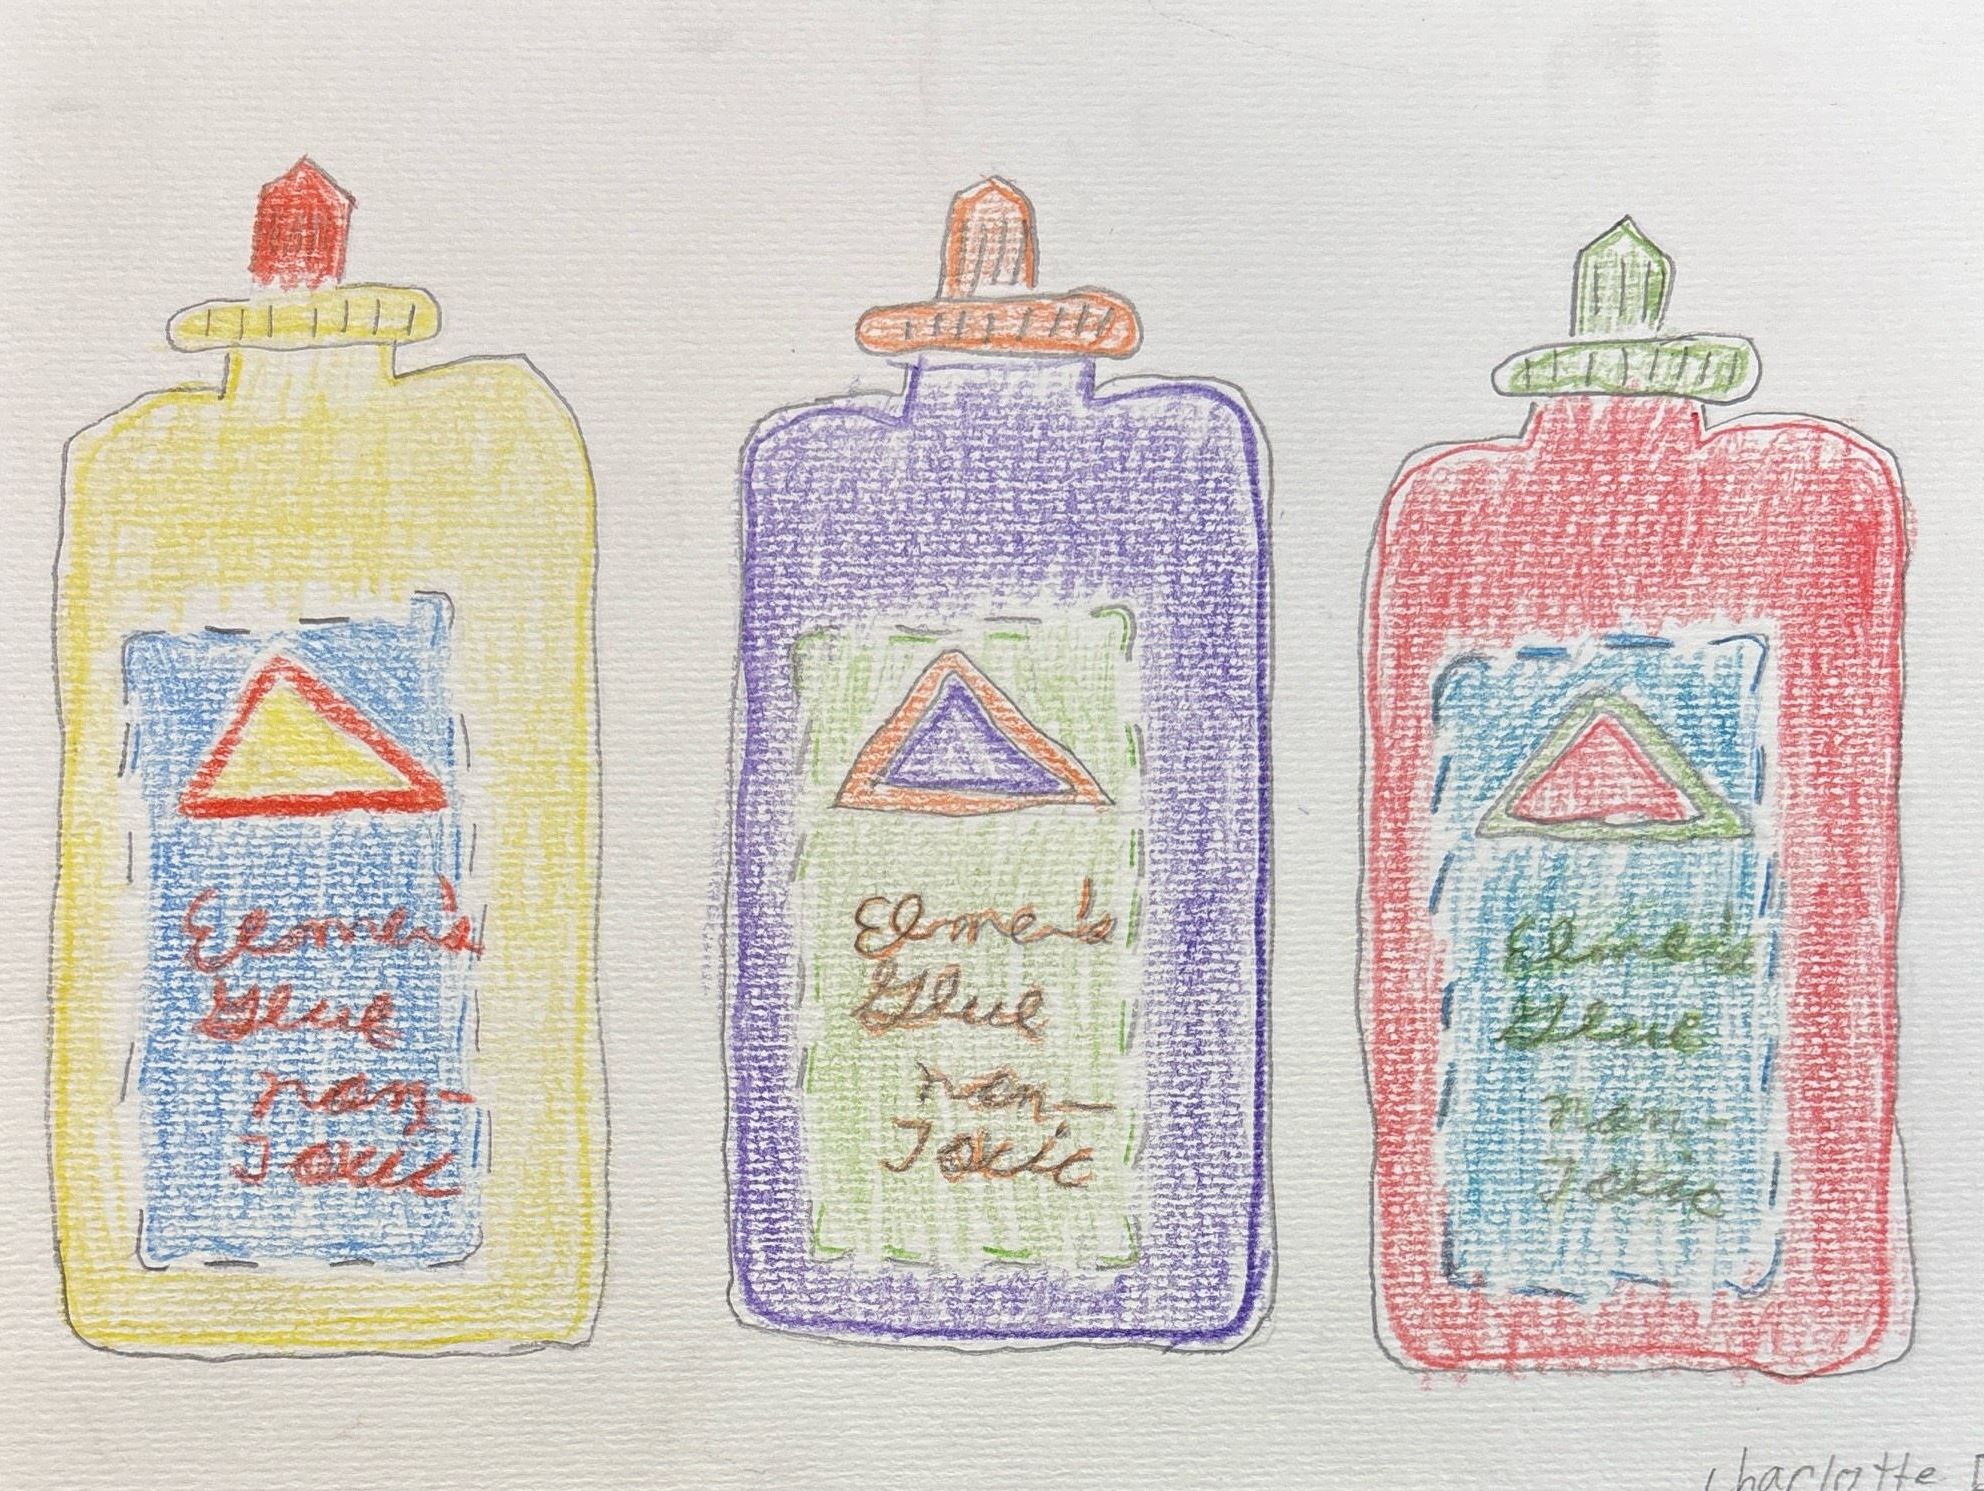 Elmer's
Glue
non-
Toxic
Elmer's
Glue
non-
Toxic
Elmer's
Glue
non-
Toxic
Charlotte